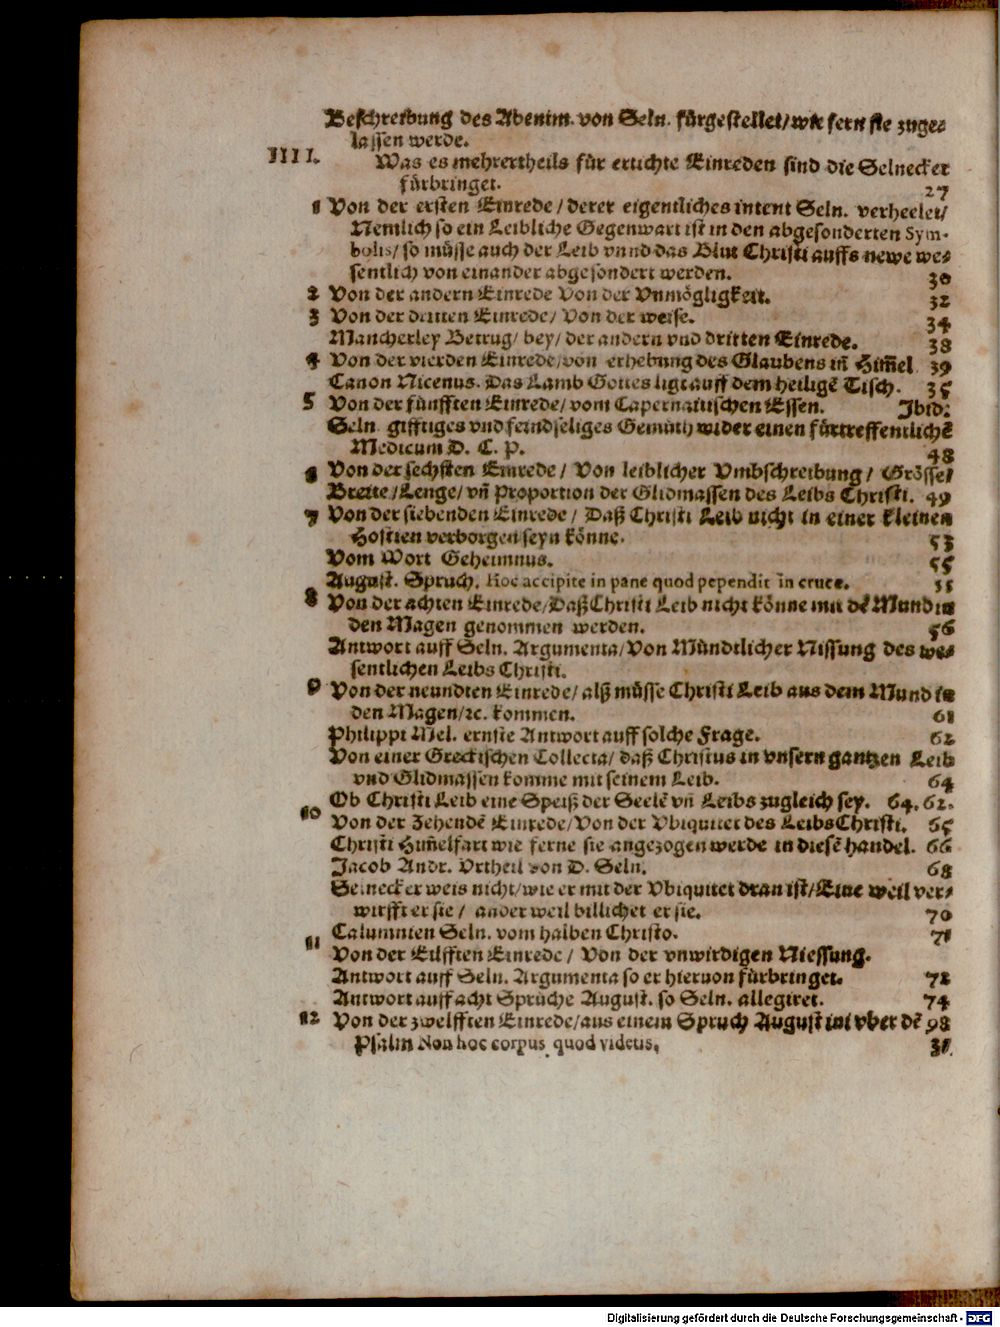 Beschreibung des Abentm. von Seln. fürgestellet/wie fern sie zuge-
lassen werde.
IIII. Was es mehrertheils für ertichte Einreden sind die Selnecker
fürbringet. 27
1 Von der ersten Einrede / derer eigentliches intent Seln. verheelet/
Nemlich so ein Leibliche Gegenwart ist in den abgesonderten Sym-
bolis/ so müsse auch der Leib vnnd das Blut Christi auffs newe we-
sentlich von einander abgesondert werden. 30
2 Von der andern Einrede Von der Vnmögligkeit. 32
3 Von der dritten Einrede/ Von der weise. 34
Mancherley Betrug/ bey/ der andern vnd dritten Einrede. 38
4 Von der vierden Einrede/von erhebung des Glaubens in̄ Him̄el 39
Canon Nicenus. Das Lamb Gottes ligt auff dem heiligē Tisch. 35
5 Von der fünfften Einrede/ vom Capernaitischen Essen. Ibid.
Seln. gifftiges vnd feindseliges Gemüth wider einen fürtreffentlichē
Medicum D. C. P. 48
6 Von der sechsten Einrede / Von leiblicher Vmbschreibung / Grösse/
Breite/Lenge/ vn̄ Proportion der Glidmassen des Leibs Christi. 49
7 Von der siebenden Einrede / Daß Christi Leib nicht in einer kleinen
Hostien verborgen seyn könne. 53
Vom Wort Geheimnus. 55
August. Spruch. Hoc accipite in pane quod pependit in cruce. 55
8 Von der achten Einrede/Daß Christi Leib nicht könne mit dē Mund in
den Magen genommen werden. 56
Antwort auff Seln. Argumenta/Von Mündtlicher Nissung des we-
sentlichen Leibs Christi.
9 Von der neundten Einrede/ alß müsse Christi Leib aus dem Mund in
den Magen/ꝛc. kommen. 61
Philippi Mel. ernste Antwort auff solche Frage. 62
Von einer Greckischen Collecta/ daß Christus in vnsern gantzen Leib
vnd Glidmassen komme mit seinem Leib. 64
Ob Christi Leib eine Speiß der Seelē vn̄ Leibs zugleich sey. 64. 62.
10 Von der Zehendē Einrede/Von der Vbiquitet des Leibs Christi. 65
Christi Him̄elfart wie ferne sie angezogen werde in diesē handel. 66
Jacob Andr. Vrtheil von D. Seln. 68
Selnecker weis nicht/wie er mit der Vbiquitet dran ist/Eine weil ver-
wirfft er sie / ander weil billichet er sie. 70
Calumnien Seln. vom halben Christo. 71
11 Von der Eilfften Einrede / Von der vnwirdigen Niessung.
Antwort auff Seln. Argumenta so er hieruon fürbringet. 72
Antwort auff acht Sprüche August. so Seln. allegiret. 74
12 Von der zwelfften Einrede/aus einem Spruch Augustini vber dē 98
Psalm Non hoc corpus quod videtis. 31
Digitalisierung gefördert durch die Deutsche Forschungsgemeinschaft - DFG